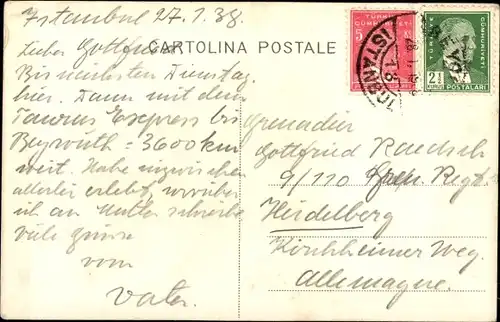 Istanbul 27.1.38.
CARTOLINA POSTALE
Lieber Gottfried
Bis nächsten Dienstag
hier. Dann mit dem
Taurus Express bis
Beyruth = 3600 km
weit. Habe inzwischen
allerlei erlebt, worüber
ich an Mutter schreibe
Viele Grüsse
vom
Vater.
TÜRKİYE
CUMHURİYETİ
5
TÜRKİYE
CUMHURİYETİ
2½
POSTALARI
ISTANBUL
Grenadier
Gottfried
9/110 Gren. Regt.
Heidelberg
Kirchheimer Weg.
Allemagne.